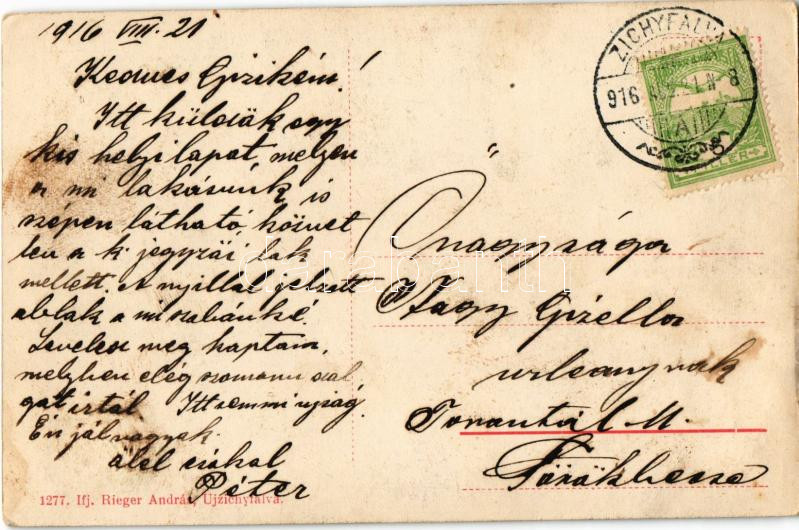 1916 VIII. 21
Kedves Gizikém!
Itt küldök egy
kis helyi lapot, melyen
a mi lakásunk is
szépen látható, közvet
len a k. jegyzői lak
mellett. A nyillal jelzett
ablak a mi szobánké.
Leveled meg kaptam,
melyben elég szomorú
gat irtál Itt semmi ujság
Én jól vagyok.
ölel csókol
Péter
1277. Ifj. Rieger András, Ujzichyfalva.
ZICHYFALVA
916
Önagysága
Nagy Gizella
urleanynak
Torontál M.
Törökbecse
darabanth